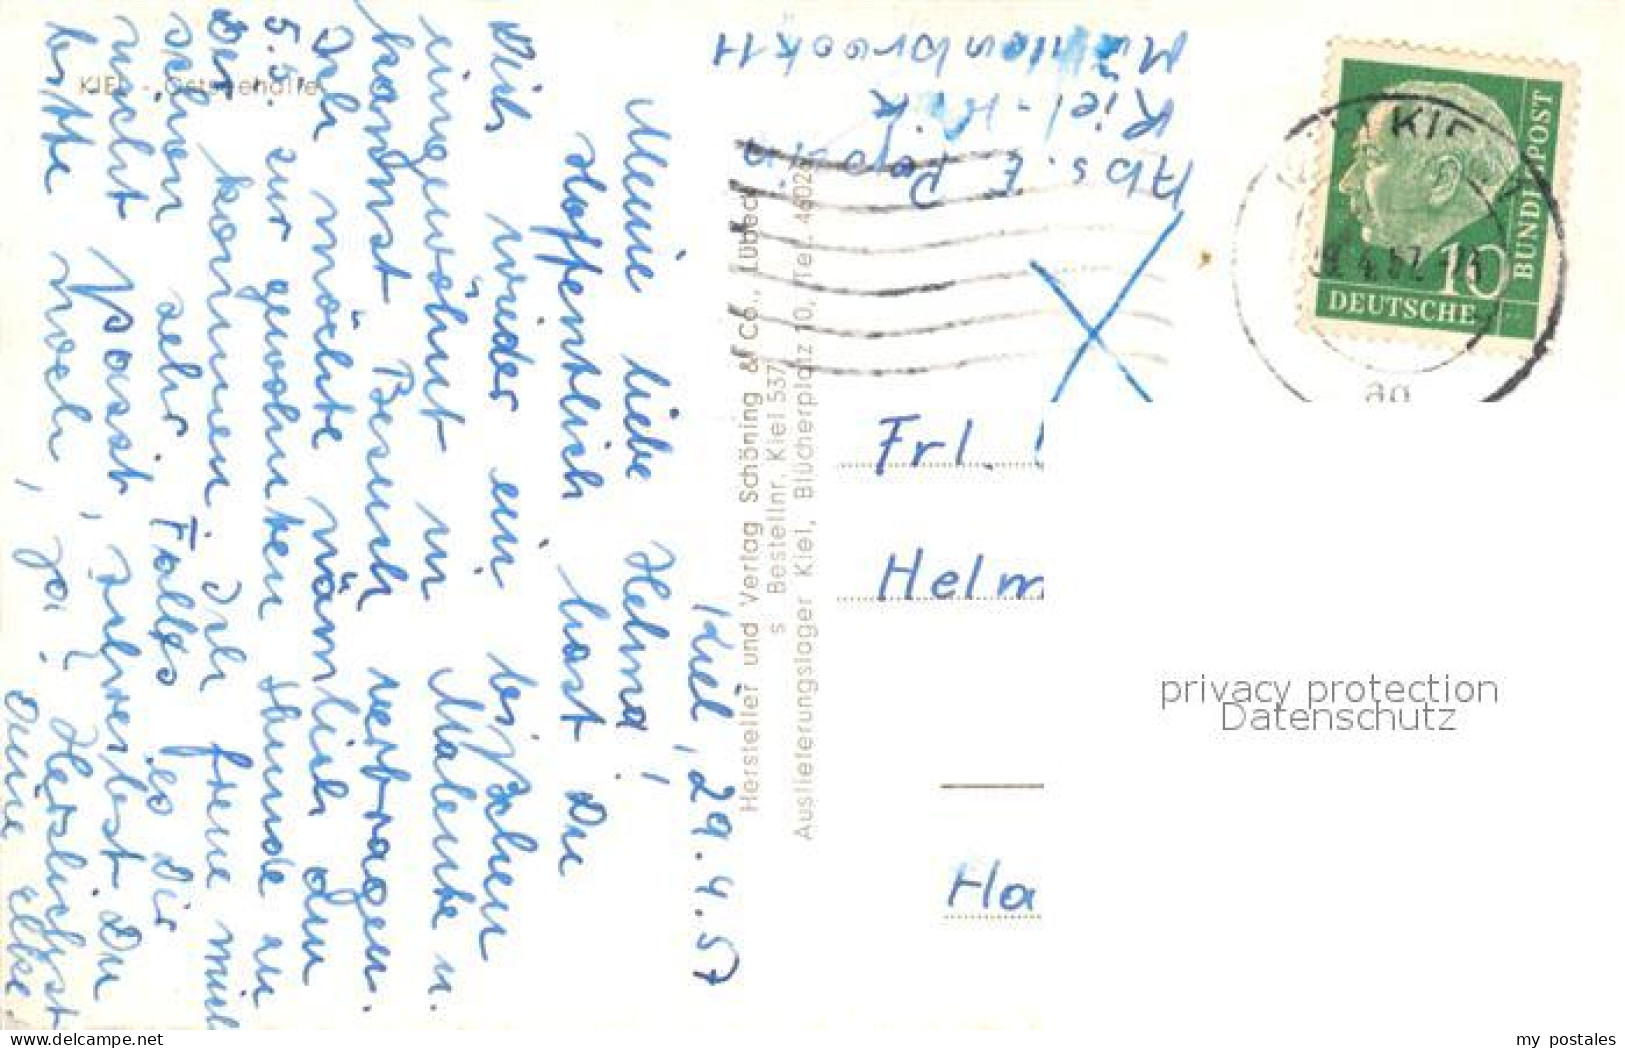 KIEL - Ostseehalle
Kiel, 29.4.57
Meine liebe Helma!
Hoffentlich hast Du
Dich wieder ein bißchen
eingewöhnt in Malente u.
kannst Besuch vertragen.
Ich möchte nämlich am
5.5. zur gewohnten Stunde zu
Dir kommen. Ich freue mich
schon sehr. Falls es Dir
nicht passt, schreibst Du
bitte noch, ja? Herzlichst
Deine Ilse.
Hersteller und Verlag Schöning & Co., Lübeck
s Bestellnr. Kiel 537
Auslieferungslager Kiel, Blücherplatz 10, Tel.
Abs. E
Kiel-
DEUTSCHE
BUNDESPOST
10
KIEL
Frl.
Helm
Ha
privacy protection
Datenschutz
www.delcampe.net
my_postales